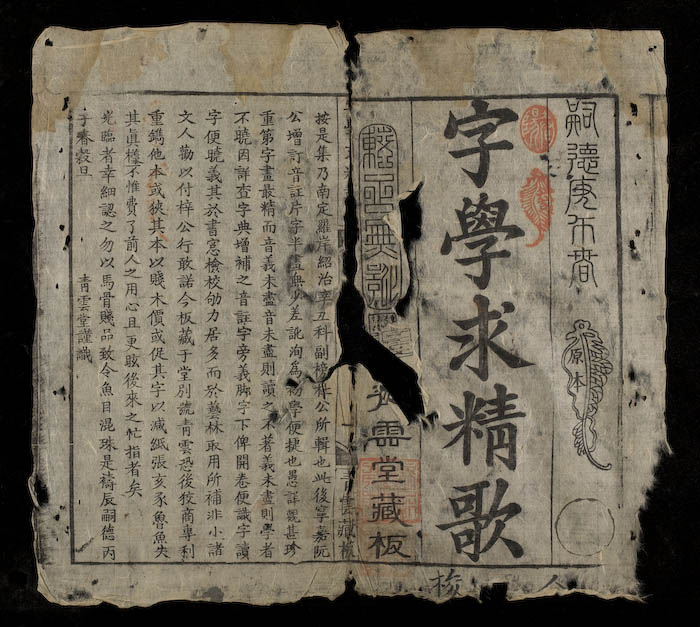 嗣德
春
原本
字學求精歌
雲堂藏板
雲藏板
按是集乃南定羅岸紹治辛丑科副榜梓公所輯也此後寧嘉阮
公增訂音註片字半畫無少差訛洵爲初學便捷也愚詳觀甚珍
重第字畫最精而音義未盡音未盡則讀之不著義未盡則學者
不曉因詳查字典增補之音註字旁義脚字下俾開卷便識字讀
字便曉義其於書窓檢校劬力居多而於藝林取用所補非小諸
文人勸以付梓公行敢諾今板藏于堂別號青雲恐後狡商專利
重鐫他本或狹其本以賤木價或促其字以減紙張亥豕魯魚失
其眞樣不惟費了前人之用心且更眩後來之忙指者矣
光臨者幸細認之勿以馬骨賤品致令魚目混珠是禱辰嗣德丙
子春穀旦 青雲堂謹識